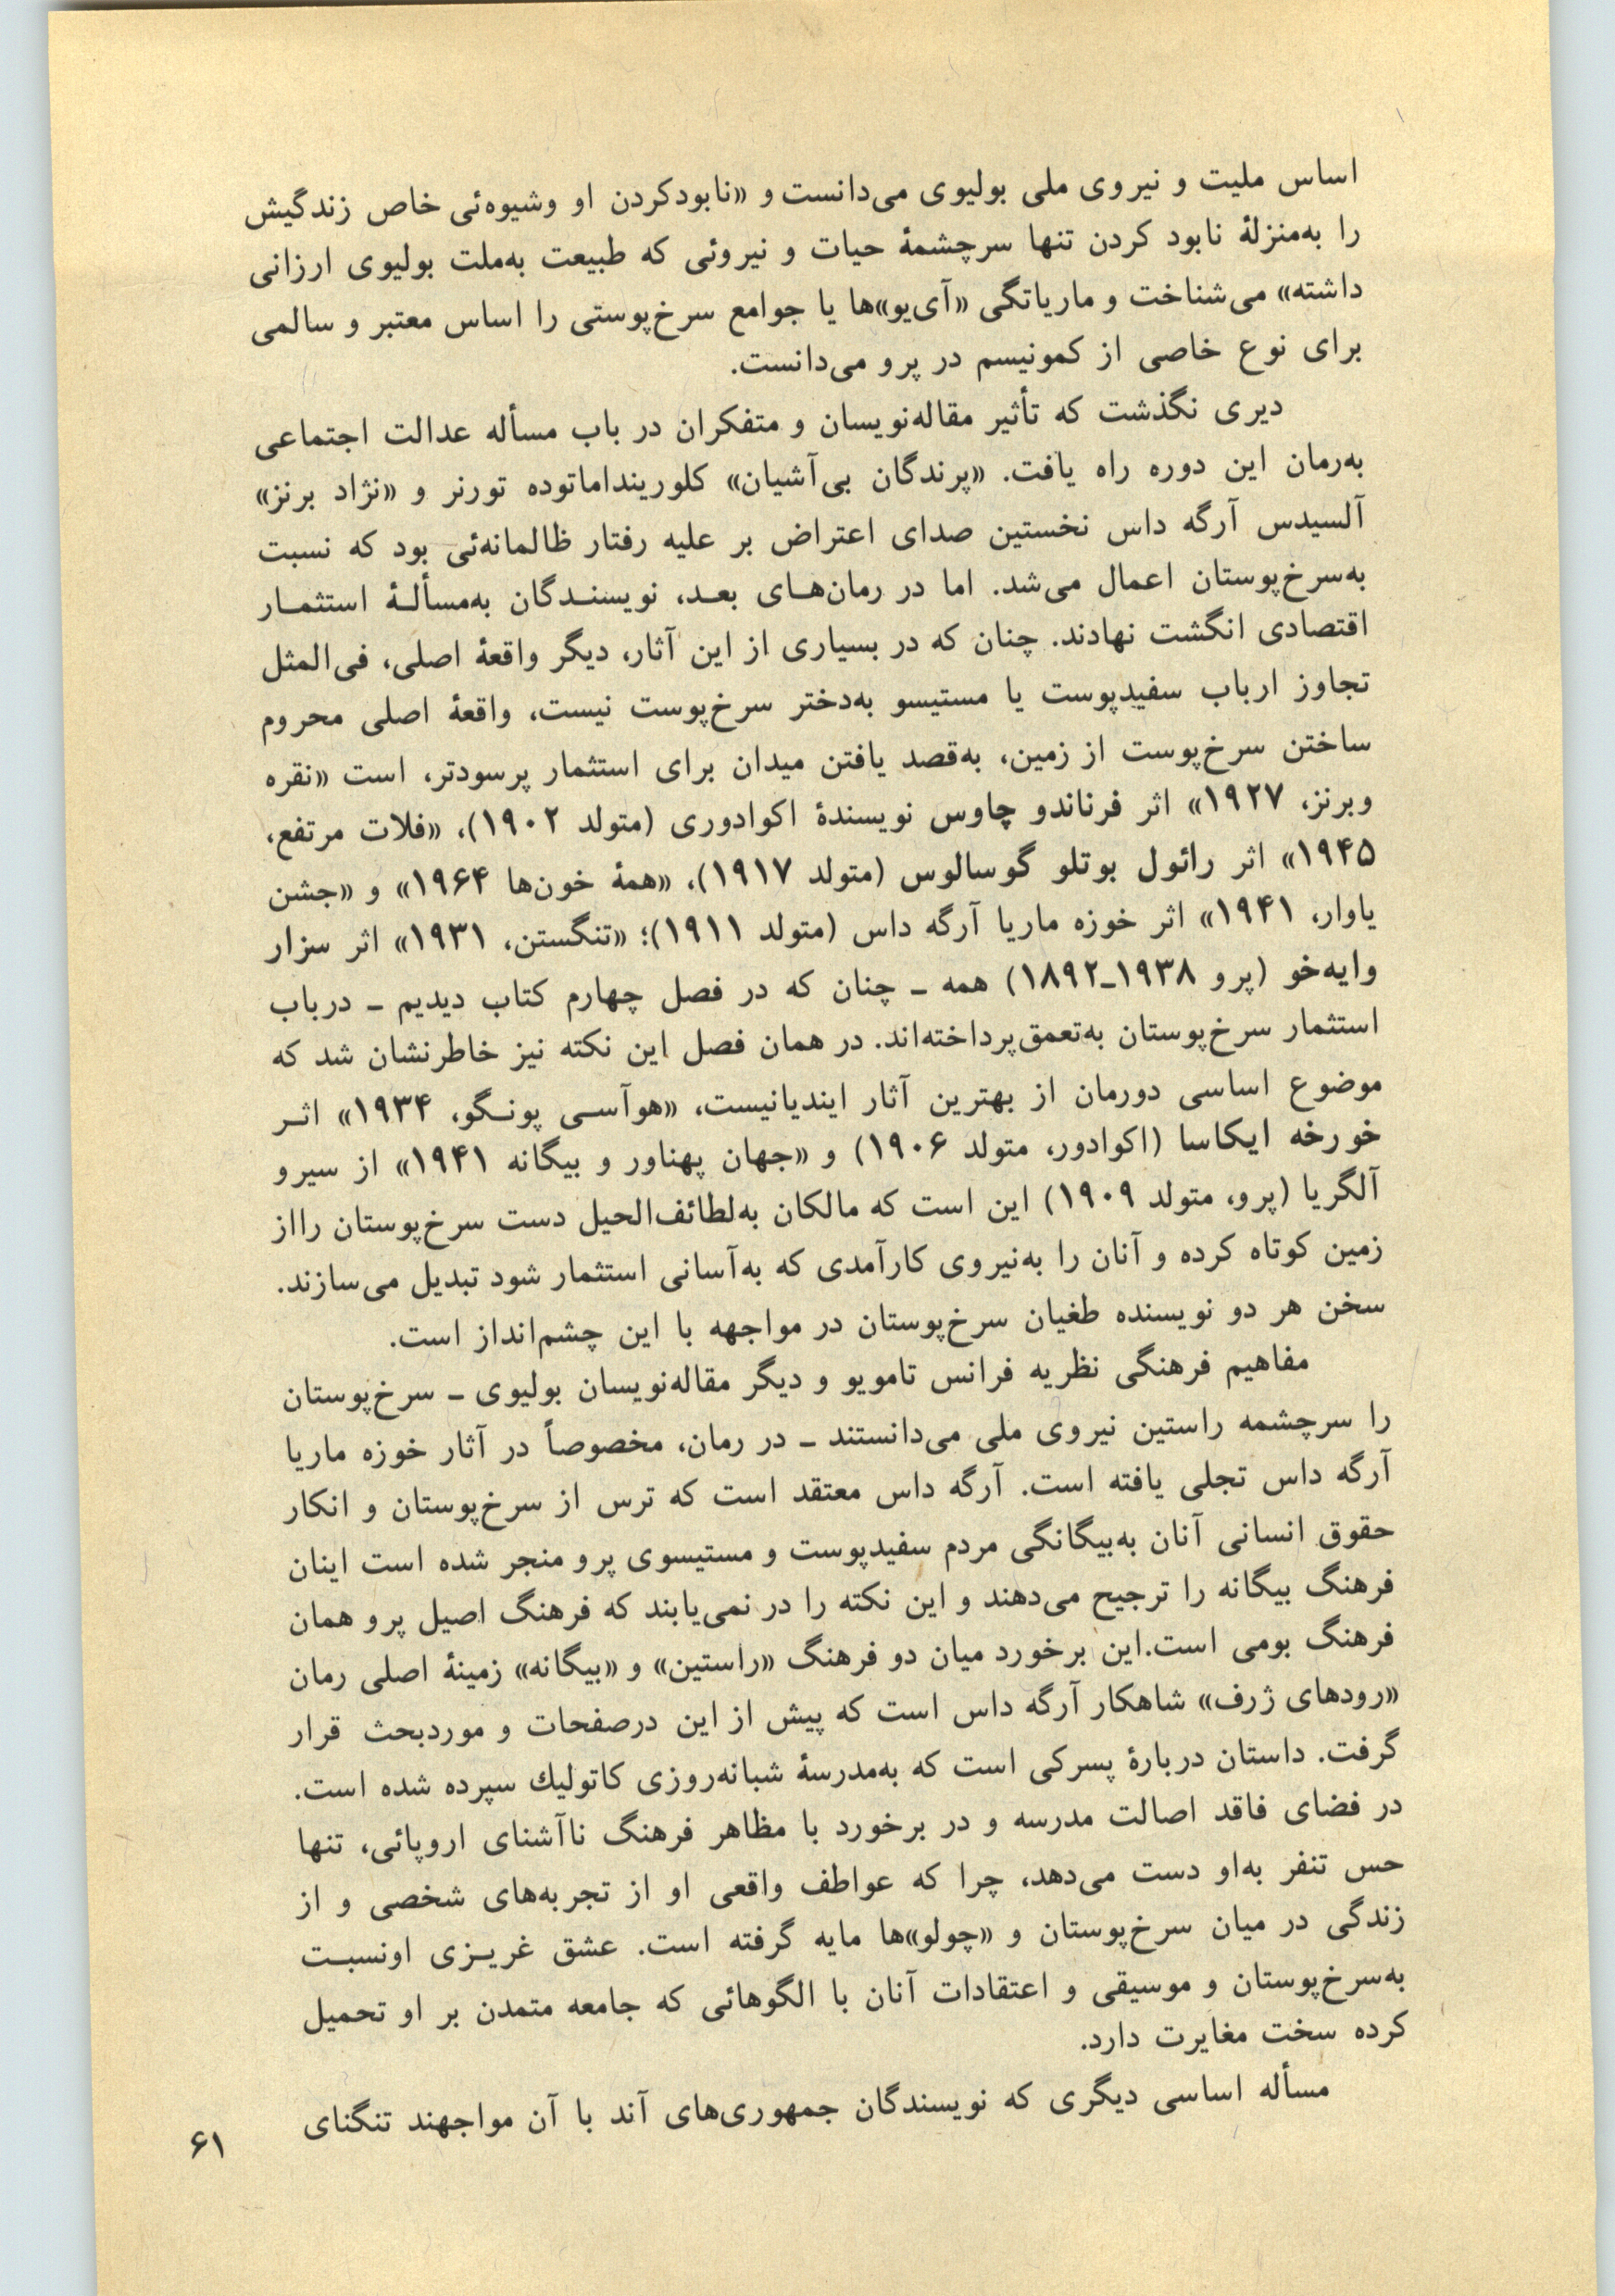 اساس ملیت و نیروی ملی بولیوی می‌دانست و «نابودکردن او وشیوه‌ئی خاص زندگیش
را به‌منزلهٔ نابود کردن تنها سرچشمهٔ حیات و نیروئی که طبیعت به‌ملت بولیوی ارزانی
داشته» می‌شناخت و ماریاتگی «آی‌یو»ها یا جوامع سرخ‌پوستی را اساس معتبر و سالمی
برای نوع خاصی از کمونیسم در پرو می‌دانست.
دیری نگذشت که تأثیر مقاله‌نویسان و متفکران در باب مسأله عدالت اجتماعی
به‌رمان این دوره راه یافت. «پرندگان بی‌آشیان» کلورینداماتوده تورنر و «نژاد برنز»
آلسیدس آرگه داس نخستین صدای اعتراض بر علیه رفتار ظالمانه‌ئی بود که نسبت
به‌سرخ‌پوستان اعمال می‌شد. اما در رمان‌هـای بعـد، نویسنـدگان به‌مسألـهٔ استثمـار
اقتصادی انگشت نهادند. چنان که در بسیاری از این آثار، دیگر واقعهٔ اصلی، فی‌المثل
تجاوز ارباب سفیدپوست یا مستیسو به‌دختر سرخ‌پوست نیست، واقعهٔ اصلی محروم
ساختن سرخ‌پوست از زمین، به‌قصد یافتن میدان برای استثمار پرسودتر، است «نقره
وبرنز، ۱۹۲۷» اثر فرناندو چاوس نویسندهٔ اکوادوری (متولد ۱۹۰۲)، «فلات مرتفع،
۱۹۴۵» اثر رائول بوتلو گوسالوس (متولد ۱۹۱۷)، «همهٔ خون‌ها ۱۹۶۴» و «جشن
یاوار، ۱۹۴۱» اثر خوزه ماریا آرگه داس (متولد ۱۹۱۱)؛ «تنگستن، ۱۹۳۱» اثر سزار
وایه‌خو (پرو ۱۹۳۸ـ۱۸۹۲) همه ـ چنان که در فصل چهارم کتاب دیدیم ـ درباب
استثمار سرخ‌پوستان به‌تعمق‌پرداخته‌اند. در همان فصل این نکته نیز خاطرنشان شد که
موضوع اساسی دورمان از بهترین آثار ایندیانیست، «هوآسـی پونـگو، ۱۹۳۴» اثـر
خورخه ایکاسا (اکوادور، متولد ۱۹۰۶) و «جهان پهناور و بیگانه ۱۹۴۱» از سیرو
آلگریا (پرو، متولد ۱۹۰۹) این است که مالکان به‌لطائف‌الحیل دست سرخ‌پوستان رااز
زمین کوتاه کرده و آنان را به‌نیروی کارآمدی که به‌آسانی استثمار شود تبدیل می‌سازند.
سخن هر دو نویسنده طغیان سرخ‌پوستان در مواجهه با این چشم‌انداز است.
مفاهیم فرهنگی نظریه فرانس تامویو و دیگر مقاله‌نویسان بولیوی ـ سرخ‌پوستان
را سرچشمه راستین نیروی ملی می‌دانستند ـ در رمان، مخصوصاً در آثار خوزه ماریا
آرگه داس تجلی یافته است. آرگه داس معتقد است که ترس از سرخ‌پوستان و انکار
حقوق انسانی آنان به‌بیگانگی مردم سفیدپوست و مستیسوی پرو منجر شده است اینان
فرهنگ بیگانه را ترجیح می‌دهند و این نکته را در نمی‌یابند که فرهنگ اصیل پرو همان
فرهنگ بومی است.این برخورد میان دو فرهنگ «راستین» و «بیگانه» زمینهٔ اصلی رمان
«رودهای ژرف» شاهکار آرگه داس است که پیش از این درصفحات و موردبحث قرار
گرفت. داستان دربارهٔ پسرکی است که به‌مدرسهٔ شبانه‌روزی کاتولیك سپرده شده است.
در فضای فاقد اصالت مدرسه و در برخورد با مظاهر فرهنگ ناآشنای اروپائی، تنها
حس تنفر به‌او دست می‌دهد، چرا که عواطف واقعی او از تجربه‌های شخصی و از
زندگی در میان سرخ‌پوستان و «چولو»ها مایه گرفته است. عشق غریـزی اونسبـت
به‌سرخ‌پوستان و موسیقی و اعتقادات آنان با الگوهائی که جامعه متمدن بر او تحمیل
کرده سخت مغایرت دارد.
مسأله اساسی دیگری که نویسندگان جمهوری‌های آند با آن مواجهند تنگنای
۶۱